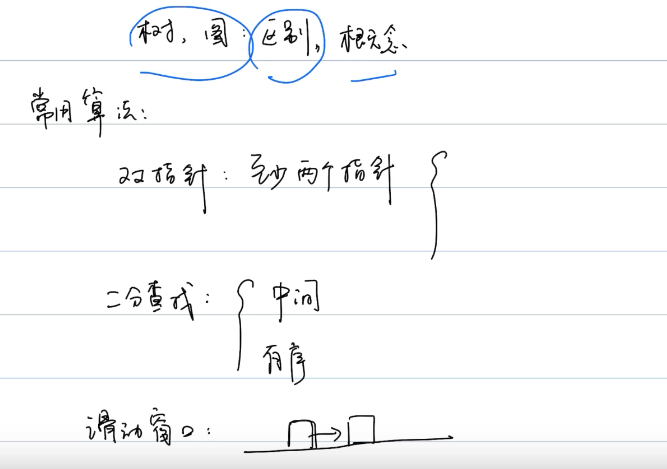 树,图:区别,概念、
常用算法:
双指针:至少两个指针 {
二分查找:{ 中间
有序
滑动窗口: